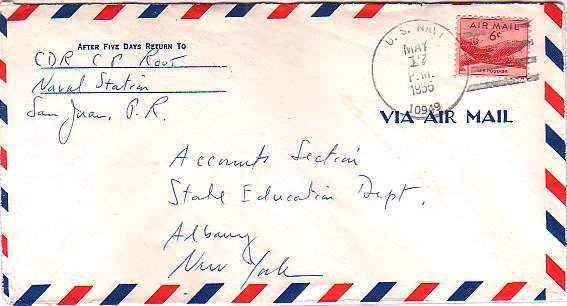 AFTER FIVE DAYS RETURN TO
CDR C P Root
Naval Station
San Juan, P.R.
U.S. NAVY
MAY
17
P.M.
10949
AIR MAIL
6¢
U.S. POSTAGE
VIA AIR MAIL
Accounts Section
State Education Dept.
Albany
New York